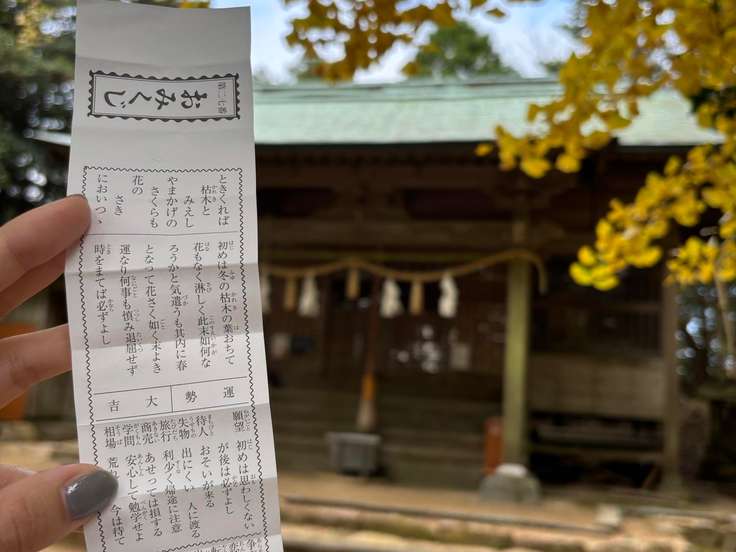 第二七番
おみくじ
ときくれば
枯木と
みえし
やまかげの
さくらも
花の
さき
においつゝ
初めは冬の枯木の葉おちて
花もなく淋しく此末如何な
ろうかと気遣うも其内に春
となって花さく如く末よき
運なり何事も慎み退屈せず
時をまてば必ずよし
運勢
大吉
願望 初めは思わしくない
が後は必ずよし
待人 おそいが来る
失物 出にくい 人に渡る
旅行 利少く帰途に注意
商売 あせっては損する
学問 安心して勉学せよ
相場 荒 今は待て